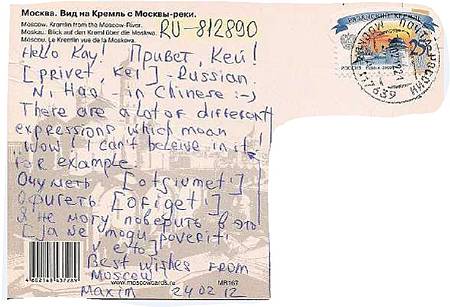 Москва. Вид на Кремль с Москвы-реки.
Moscow. Kremlin from the Moscow-River.
Moskau. Blick auf den Kreml über die Moskwa.
Moscou. Le Kremlin vue de la Moskova.
RU-812890
Hello Kay! Привет, Кей!
[privet, Ke!] - Russian,
Ni Hao in Chinese :-)
There are a lot of different
expressions which mean
"wow! I can't beleive in it"!
for example:
Очуметь [otsiumet']
Офигеть [ofiget']
Я не могу поверить в это
[ja ne mogu poveriti
v eto]
Best wishes from
Moscow
Maxim 24.02.12
www.moscowcards.ru
MR167
РОССИЯ
25
117639